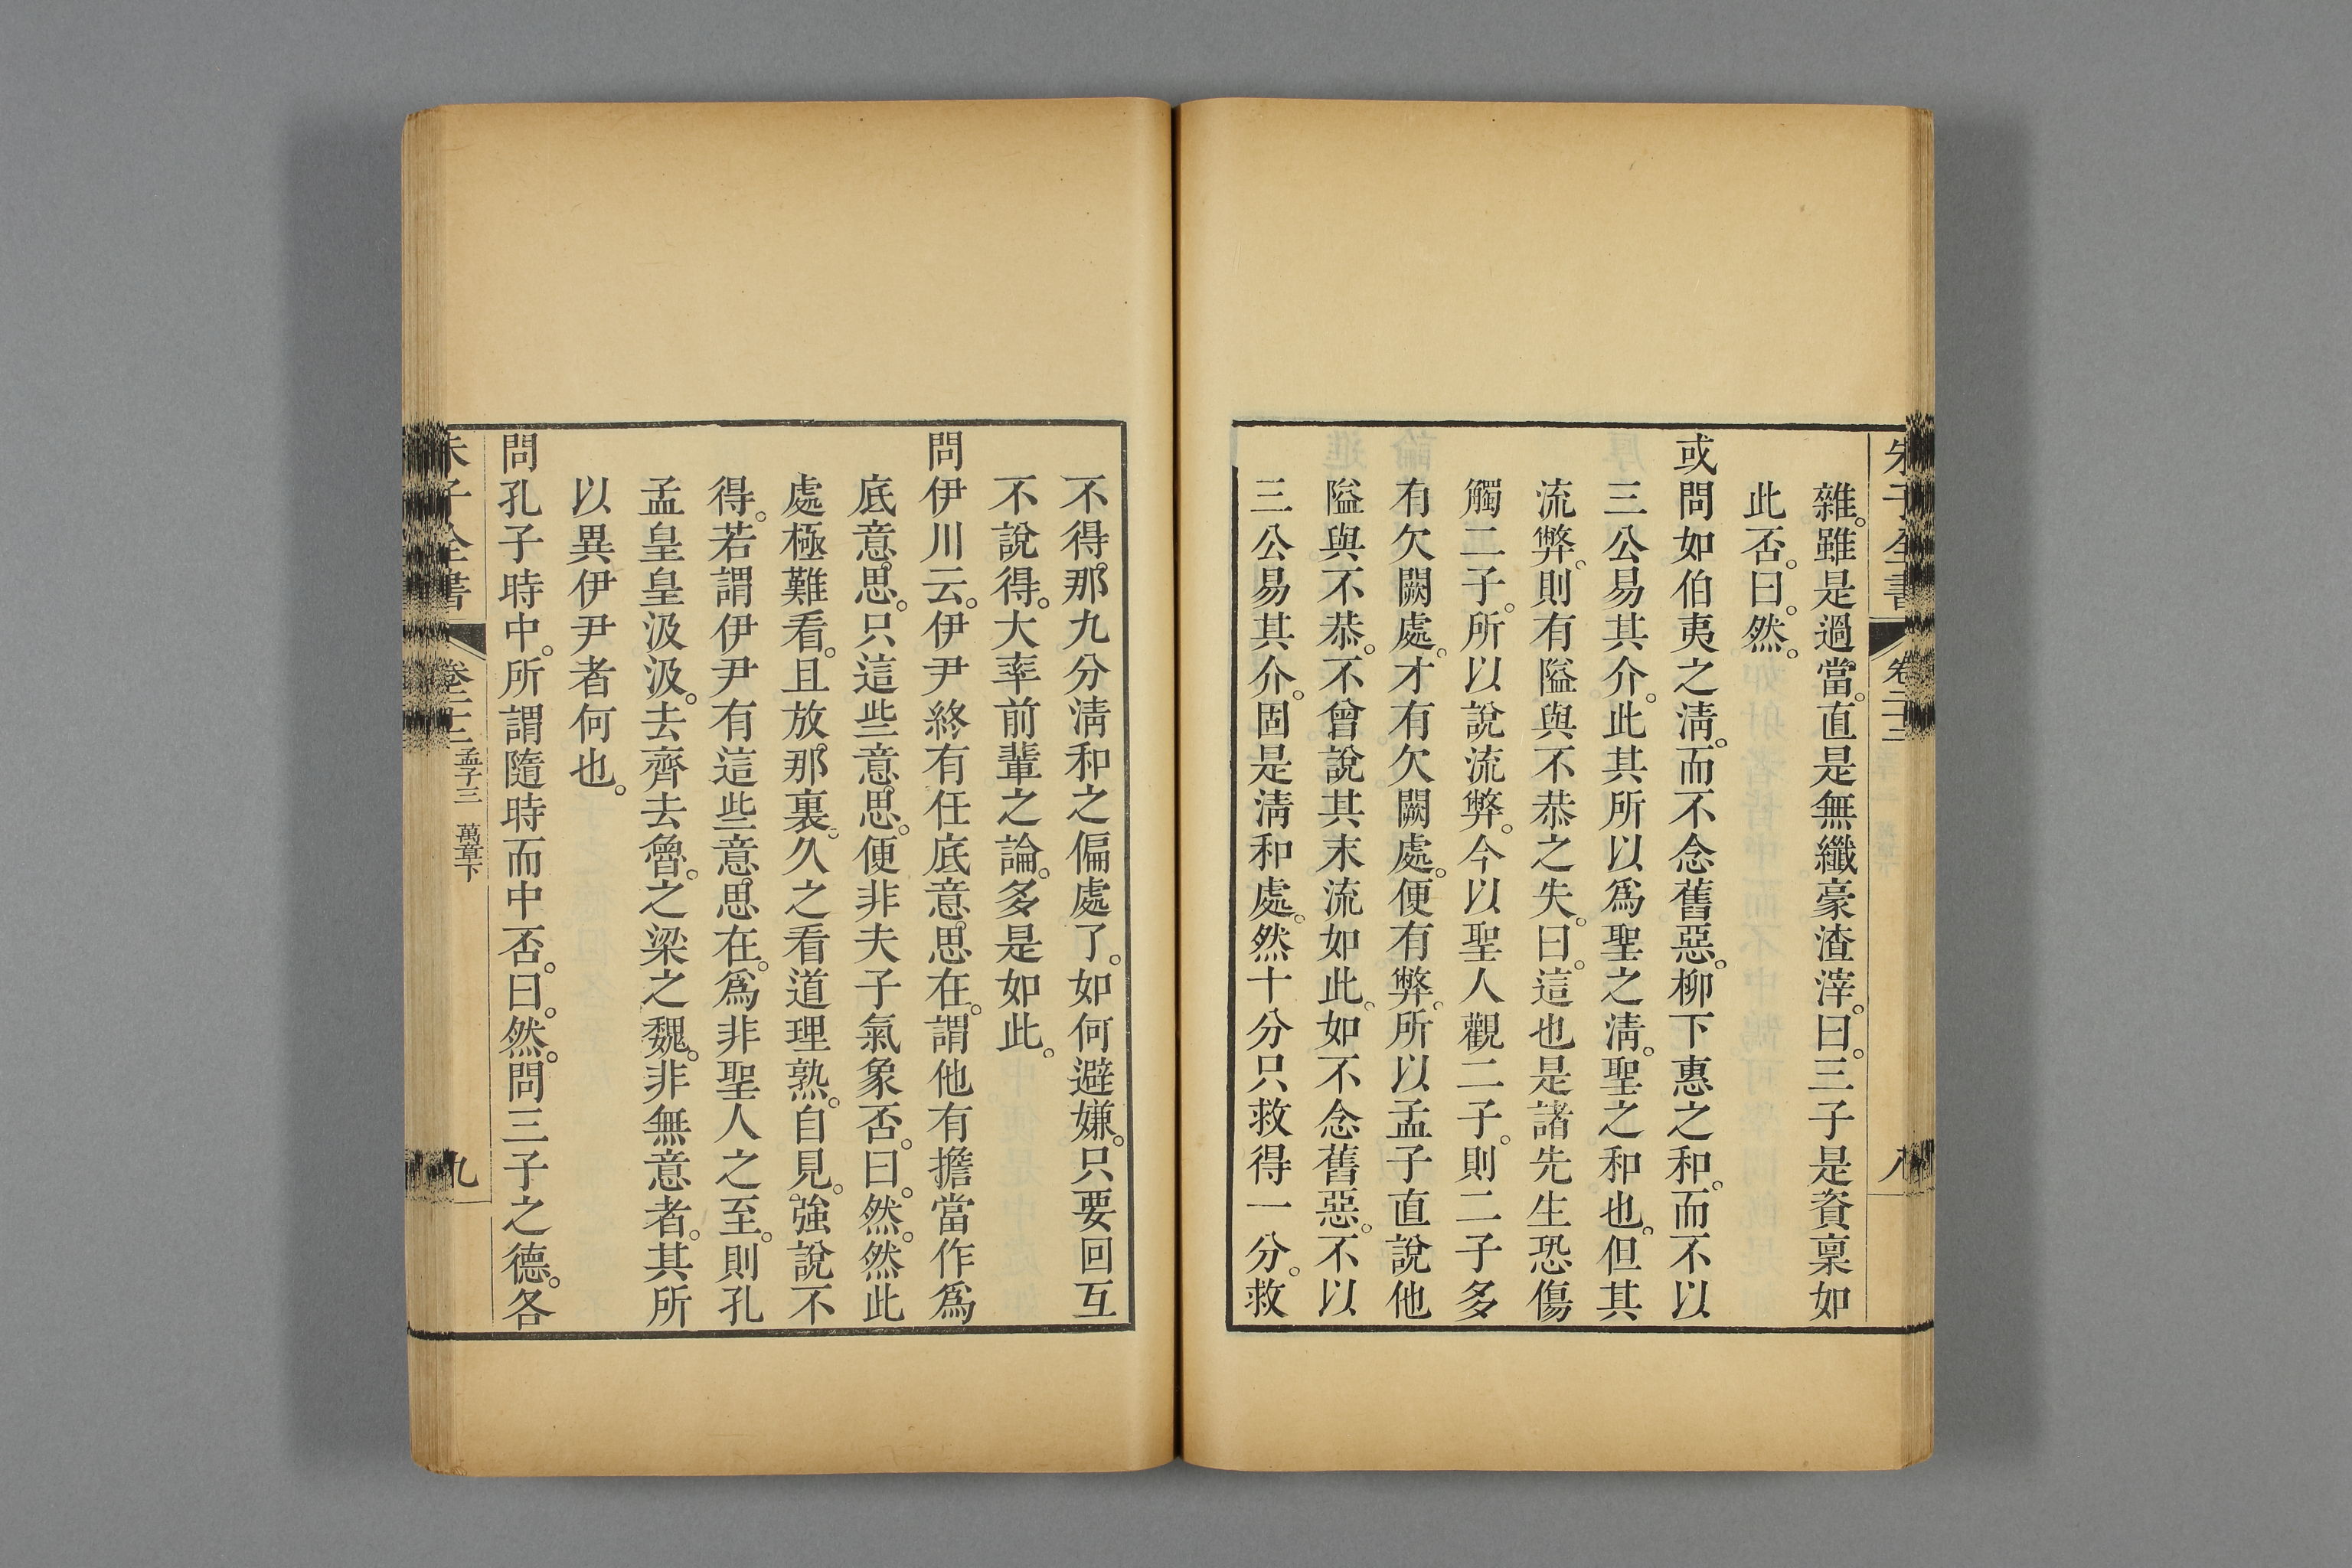 朱子全書 卷二十二 八
雜。雖是過當。直是無纖豪渣滓。曰。三子是資稟如
此否。曰。然。
或問如伯夷之淸。而不念舊惡。柳下惠之和。而不以
三公易其介。此其所以爲聖之淸。聖之和也。但其
流弊。則有隘與不恭之失。曰。這也是諸先生恐傷
觸二子。所以說流弊。今以聖人觀二子。則二子多
有欠闕處。才有欠闕處。便有弊。所以孟子直說他
隘與不恭。不曾說其末流如此。如不念舊惡。不以
三公易其介。固是淸和處。然十分只救得一分。救
不得那九分淸和之偏處了。如何避嫌。只要回互
不說得。大率前輩之論。多是如此。
問伊川云。伊尹終有任底意思在。謂他有擔當作爲
底意思。只這些意思。便非夫子氣象否。曰。然。然此
處極難看。且放那裏。久之看道理熟。自見。強說不
得。若謂伊尹有這些意思在。爲非聖人之至。則孔
孟皇皇汲汲。去齊去魯。之梁之魏。非無意者。其所
以異伊尹者何也。
問孔子時中。所謂隨時而中否。曰。然。問三子之德。各
朱子全書 孟子三 萬章下 九